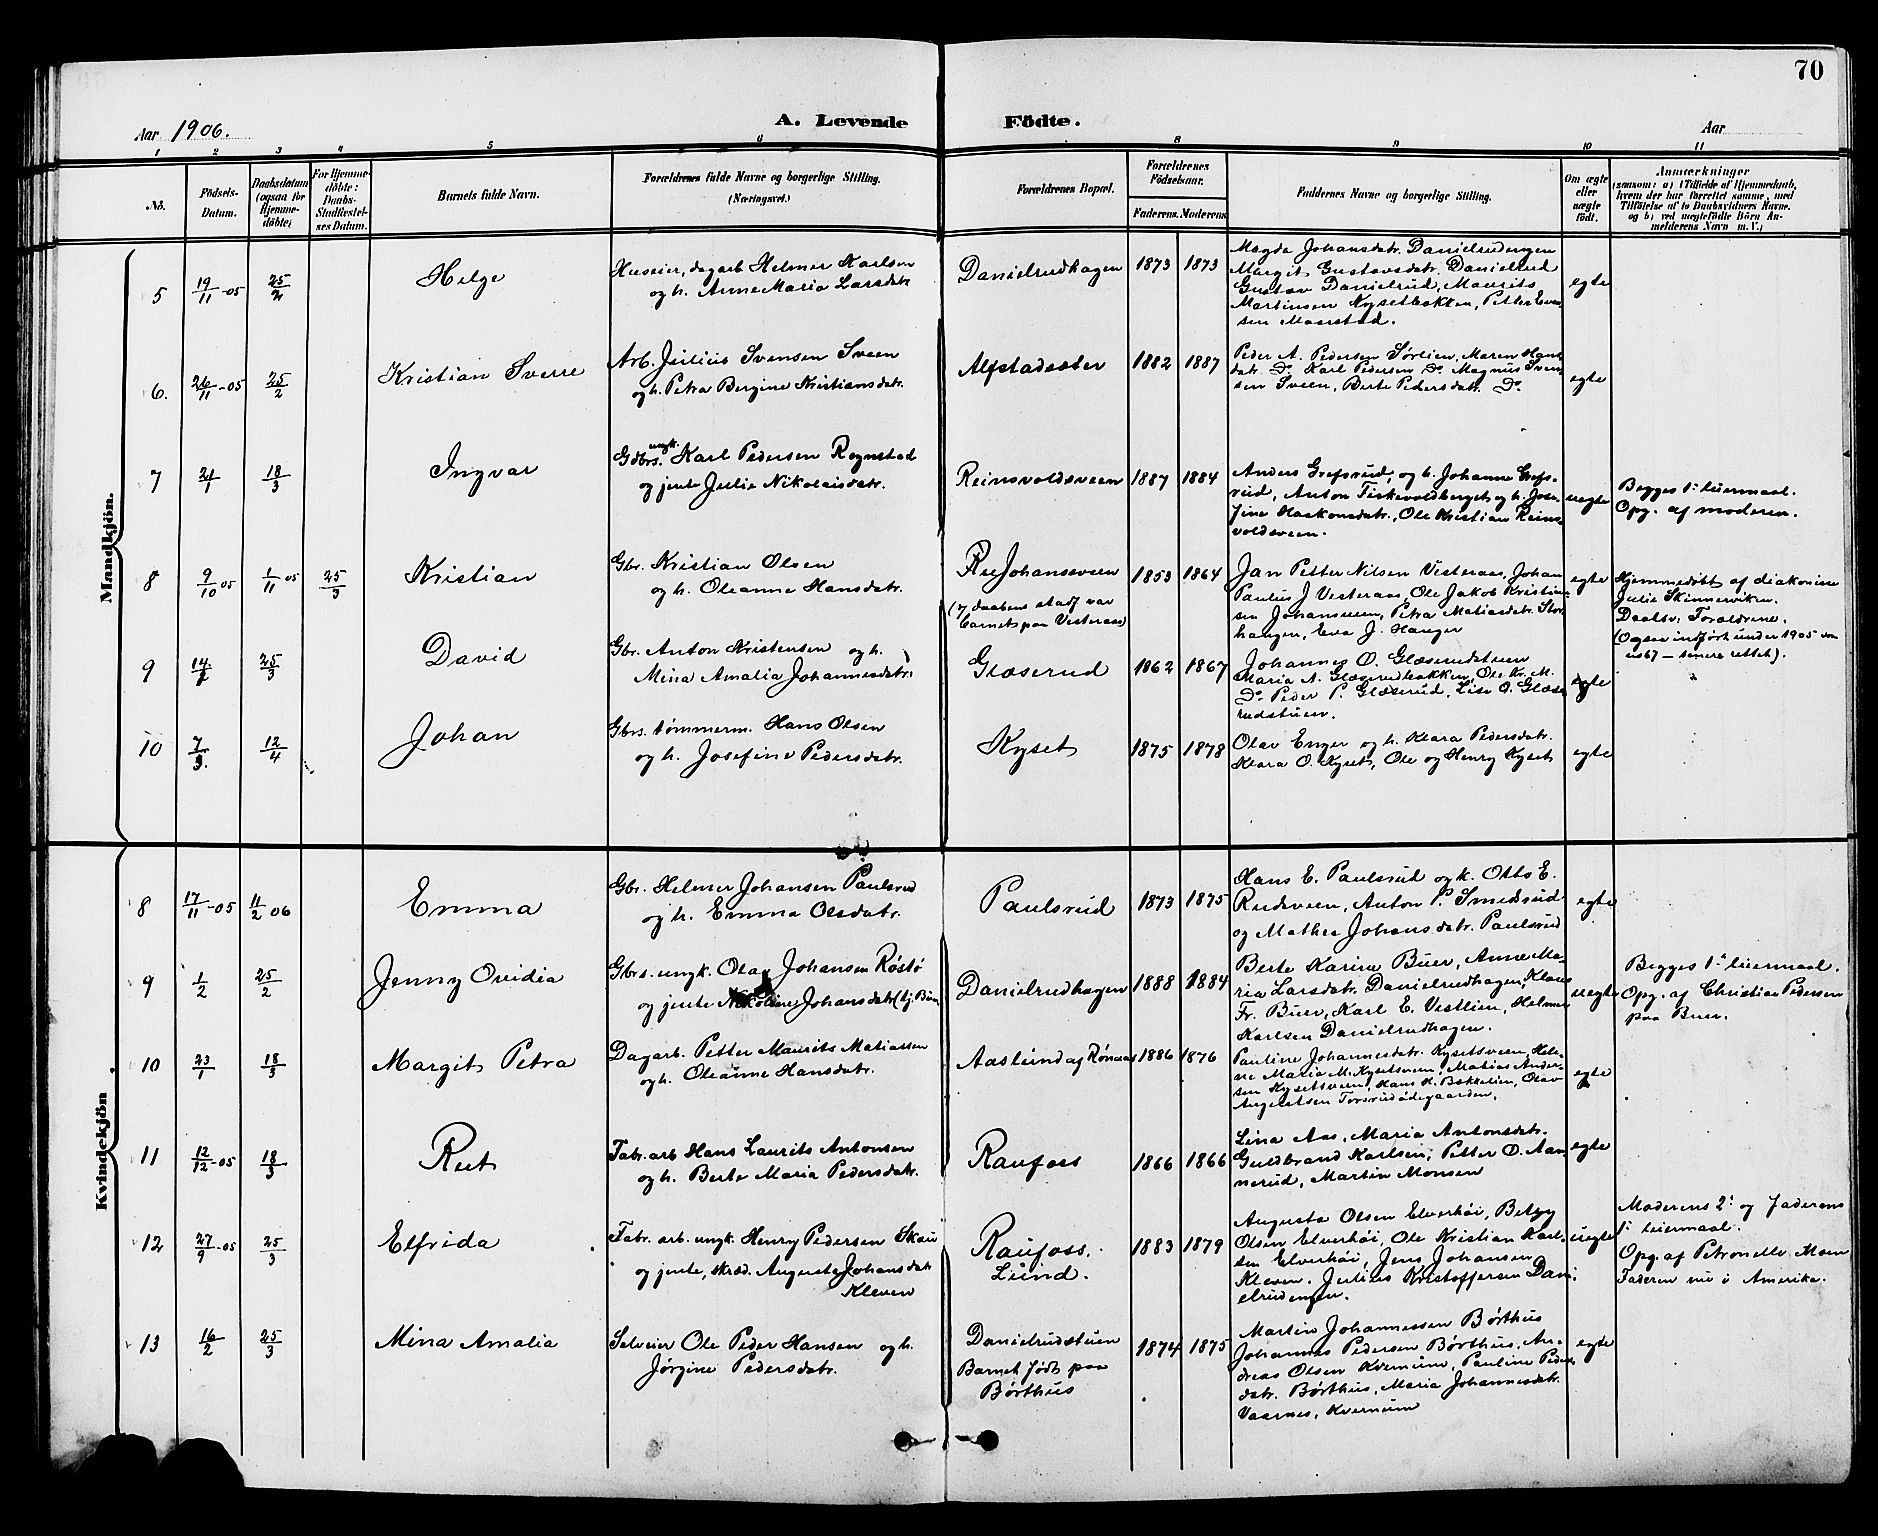 70
Aar 1906.
A. Levende Födte.
Aar
1 2 3 4 5 6 8 9 10 11
No.
Födsels-
Datum.
Daabsdatum
(ogsaa for
Hjemme-
döbte)
For Hjemme-
döbte:
Daabs-
Stadfæstel-
ses Datum.
Barnets fulde Navn.
Forældrenes fulde Navne og borgerlige Stilling.
(Næringsvei.)
Forældrenes Bopæl.
Forældrenes
Födselsaar.
Faderens. Moderens.
Faddernes Navne og borgerlige Stilling.
Om ægte
eller
uægte
födt.
Anmærkninger
(saasom: a) i Tilfælde af Hjemmedaab,
hvem der har forrettet samme, med
Tilföielse af to Daabsvidners Navne.
og b) ved uægtefödte Börn An-
melderens Navn m. V.)
Mandkjön.
5
19/11-05
25/2
Helge
Huseier, dagarb. Helmer Karlsen
og h. Anne Maria Larsdatr.
Danielrudhagen
1873 1873
Magda Johansdatr. Danielrudengen
Margit Gustavsdatr. Danielrud
Gustav Danielrud, Maurits
Martinsen Kysetbakken, Petter Even-
sen Maurstad.
egte
6.
26/11-05
25/2
Kristian Sverre
Arb. Julius Svensen Sveen
og h. Petra Bergine Kristiansdatr.
Alfstadeter
1882 1887
Peder A. Pedersen Sørlien, Maren Hans-
datr. Do. Karl Pedersen Do. Magnus Sven-
sen Sveen, Berte Pedersdatr. Do.
egte
7
21/1
18/3
Ingvar
Gdbrs. ungk. Karl Pedersen Rognstad
og jente Julie Nikolaisdatr.
Reinsvoldsveen
1887 1884
Anders Grefsrud, og h. Johanne Grefs-
rud, Anton Fiskevoldberget og h. Jose-
fine Haakonsdatr., Ole Kristian Reins-
voldsveen.
uegte
Begges 1ste leiermaal.
Opg. af moderen.
8
9/10 05
1/11 05
25/3
Kristian
Gbr. Kristian Olsen
og h. Oleanne Hansdatr.
Rue Johansveen
(v. daabens stadf. var
barnet paa Vesteraas)
1853 1864
Jan Petter Nilsen Vesteraas, Johan
Paulus J. Vesteraas, Ole Jakob Kristian-
sen Johansveen, Petra Matiasdatr. Stor-
haugen, Eva J. Hauger
egte
Hjemmedøbt af diakonisse
Julie Skinnerviken.
Daabsv. Forældrene.
(Ogsaa indført under 1905 som
no 67 - senere rettet).
9
25/3
David
Gbr. Anton Kristensen og h.
Mina Amalia Johannesdatr.
Glæserud
1862 1867
Johannes O. Glæserudstuen
Maria A. Glæserudbakken, Ole Kr. M.
Do. Peder P. Glæserud, Lise O. Glæse-
rudstuen.
egte
10
7/3.
12/4
Johan
Gbrs. tømmerm. Hans Olsen
og h. Josefine Pedersdatr.
Kyset
1875 1878
Olav Enger og h. Klara Pedersdatr.
Klara O. Kyset, Ole og Henry Kyset
egte
Kvindekjön
8
17/11-05
11/2 06
Emma
Gbr. Helmer Johansen Paulsrud
og h. Emma Olsdatr.
Paulsrud
1873 1875
Hans E. Paulsrud og k. Otto E.
Rudsveen, Anton P. Smedsrud
og Mathea Johansdatr. Paulsrud
egte
9
1/2
25/2
Jenny Ovidia
Gbrs. ungk. Olav Johansen Røstø
og jente Nikoline Johansdatr (tj. Buer)
Danielrudhagen
1888 1884
Berte Karine Buer, Anne Ma-
ria Larsdatr. Danielrudhagen, Klaus
Fr. Buer, Karl E. Vestlien, Helmer
Karlsen Danielrudhagen.
uegte
Begges 1ste leiermaal.
Opg. af Christian Pedersen
paa Buer.
10
23/1
18/3
Margit Petra
Dagarb. Petter Maurits Matiassen
og h. Oleanne Hansdatr.
Aaslund af Rønaas
1886 1876
Pauline Johannesdatr. Kysetsveen, Hele-
ne Maria M. Kysetsveen, Matias Ander-
sen Kysetsveen, Hans H. Bakkelien, Olav
Augustsen Torsrudødegaarden.
egte
11
12/12-05
18/3
Rut
Fabr. arb. Hans Laurits Antonsen
og h. Berte Maria Pedersdatr.
Raufoss
1866 1866
Lina Aas, Maria Antonsdatr.
Guldbrand Karlsen, Petter O. Aan-
nerud, Martin Monsen
egte
12
27/9-05
25/3
Elfrida
Fabr. arb. ungk. Henry Pedersen Skau
og jente, skræd. Augusta Johansdatr.
Kleven
Raufoss.
Lund.
1883 1879
Augusta Olsen Elverhøi, Betzy
Olsen Elverhøi, Ole Kristian Karl-
sen Elverhøi, Jens Johansen
Kleven. Julius Kristoffersen Dani-
elrudengen.
uegte
Moderens 2det og faderens
1ste leiermaal.
Opg. af Petronelle Moen
Faderen nu i Amerika.
13
16/2
25/3
Mina Amalia
Selveier Ole Peder Hansen og h.
Jørgine Pedersdatr.
Danielrudstuen
Barnet født paa
Børthus
1874 1875
Martin Johannessen Børthus
Johannes Pedersen Børthus, An-
dreas Olsen Kvernum, Pauline Peders-
datr. Børthus, Maria Johannesdatr.
Vaarnes, Kvernum
egte